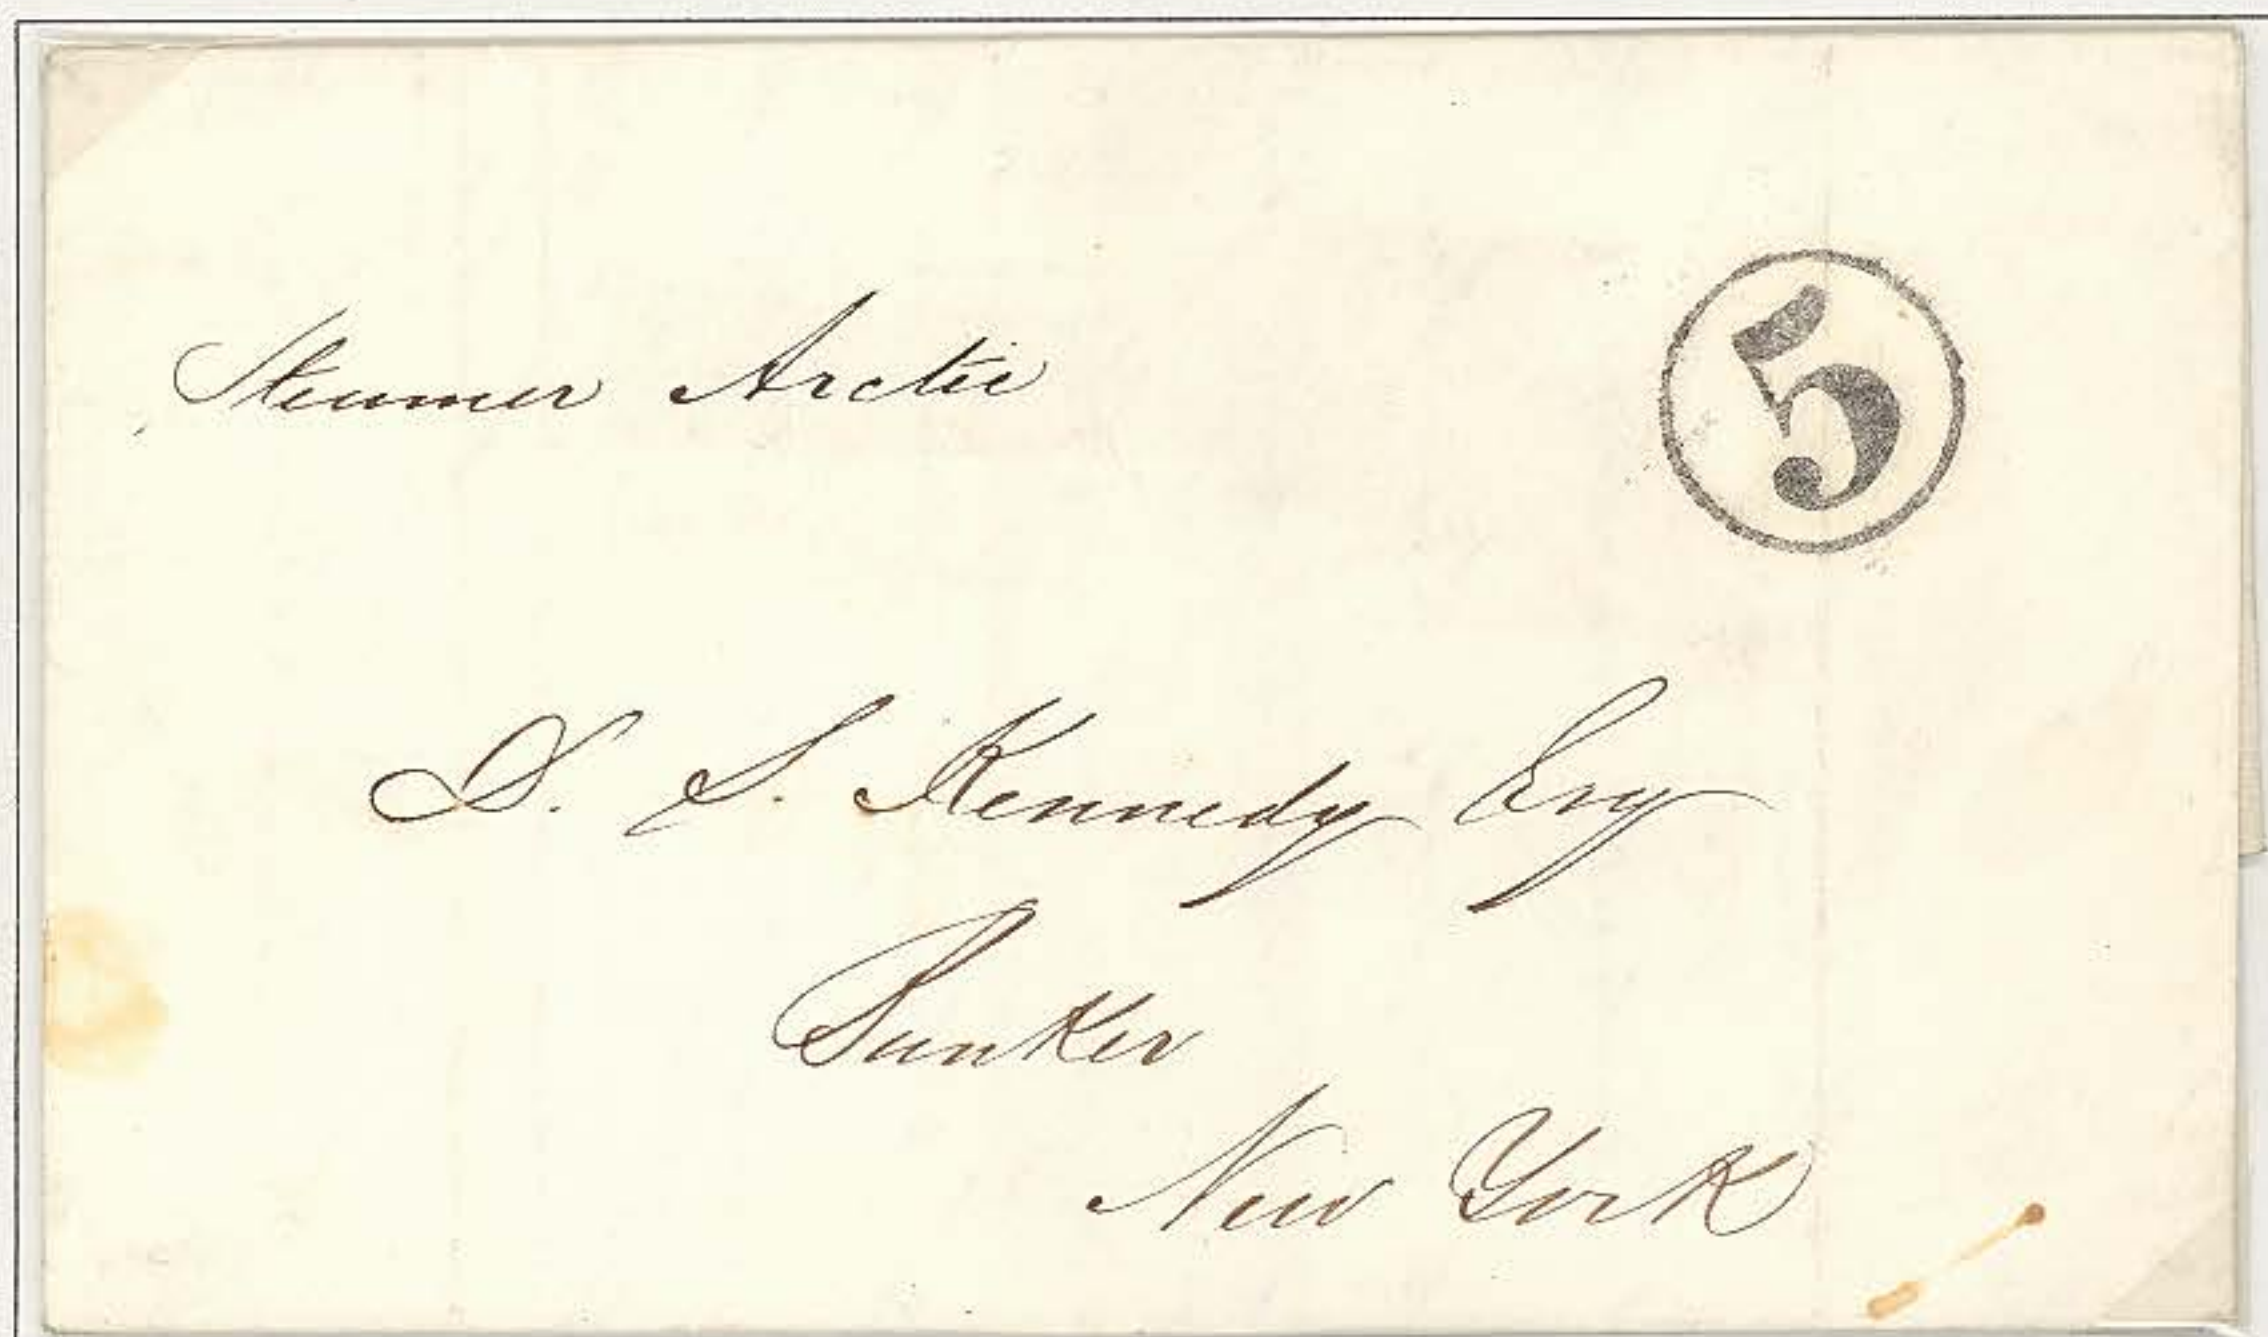 Steamer Arctic
5
D. S. Kennedy Esq
Banker
New York